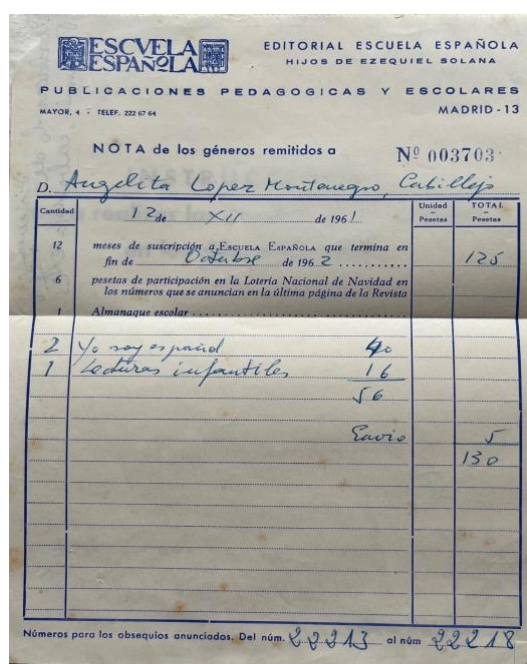 ESCVELA ESPAÑOLA
EDITORIAL ESCUELA ESPAÑOLA
HIJOS DE EZEQUIEL SOLANA
PUBLICACIONES PEDAGOGICAS Y ESCOLARES
MAYOR, 4 - TELEF. 222 67 64
MADRID - 13
NOTA de los géneros remitidos a
Nº 003703
D. Angelita Lopez Montenegro, Cubillejo
Cantidad
12 de XII de 1961
Unidad – Pesetas
TOTAL – Pesetas
12 meses de suscripción a ESCUELA ESPAÑOLA que termina en
fin de Octubre de 1962 125
6 pesetas de participación en la Lotería Nacional de Navidad en
los números que se anuncian en la última página de la Revista
1 Almanaque escolar
2 Yo soy español 40
1 Lecturas infantiles 16
56
Envio 5
130
Números para los obsequios anunciados. Del núm. 22213 al núm 22218